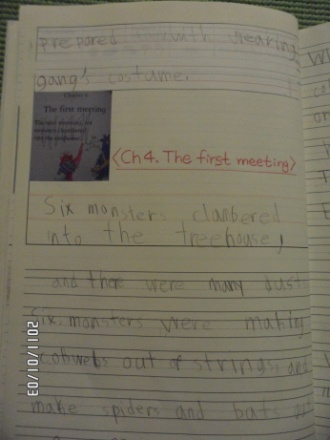 prepared with wearing
gang's costume.
The first meeting
<Ch4. The first meeting>
Six monsters clambered
into the treehouse,
and there were many dusts
Six monsters were making
cobwebs out of strings, and
make spiders and bats
03/10/2011